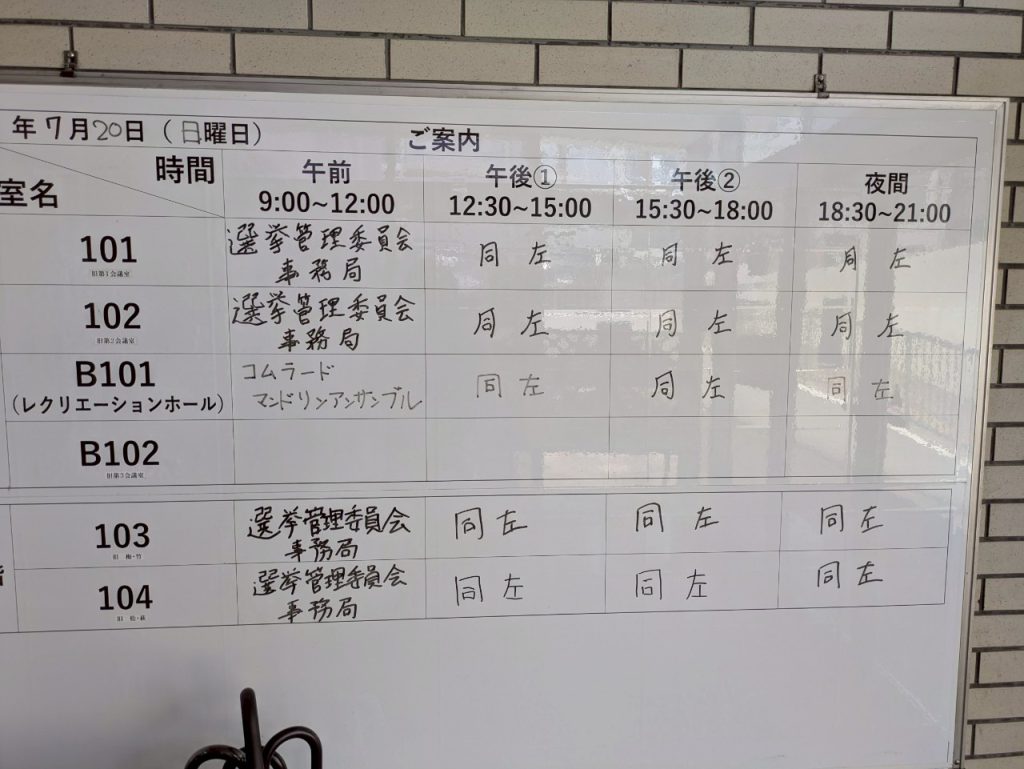 年7月20日（日曜日） ご案内
時間 午前 午後① 午後② 夜間
室名 9:00~12:00 12:30~15:00 15:30~18:00 18:30~21:00
101 選挙管理委員会 同左 同左 同左
旧第1会議室 事務局
102 選挙管理委員会 同左 同左 同左
旧第2会議室 事務局
B101 コムラード 同左 同左 同左
（レクリエーションホール） マンドリンアンサンブル
B102
旧第3会議室
103 選挙管理委員会 同左 同左 同左
旧 梅・竹 事務局
104 選挙管理委員会 同左 同左 同左
旧 松・萩 事務局